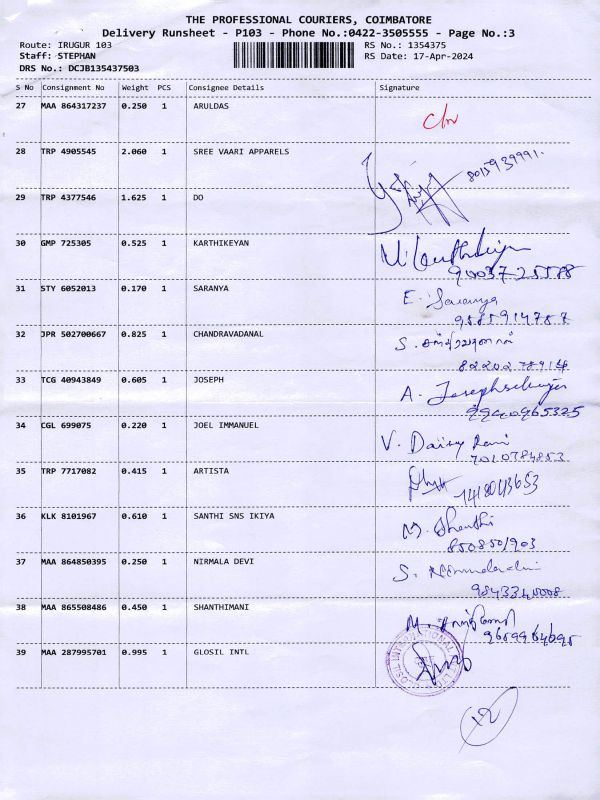 THE PROFESSIONAL COURIERS, COIMBATORE
Delivery Runsheet - P103 - Phone No.:0422-3505555 - Page No.:3
Route: IRUGUR 103
Staff: STEPHAN
DRS No.: DCJB135437503
RS No.: 1354375
RS Date: 17-Apr-2024
S No Consignment No Weight PCS Consignee Details Signature
27 MAA 864317237 0.250 1 ARULDAS
28 TRP 4905545 2.060 1 SREE VAARI APPARELS
8015939991.
29 TRP 4377546 1.625 1 DO
30 GMP 725305 0.525 1 KARTHIKEYAN
31 STY 6052013 0.170 1 SARANYA E. Saranya
32 JPR 502700667 0.825 1 CHANDRAVADANAL S.
33 TCG 40943849 0.605 1 JOSEPH A.
9940965325
34 CGL 699075 0.220 1 JOEL IMMANUEL V. Daisy Rani
7010784853
35 TRP 7717082 0.415 1 ARTISTA
36 KLK 8101967 0.610 1 SANTHI SNS IKIYA M. Shanthi
8508501903
37 MAA 864850395 0.250 1 NIRMALA DEVI S.
38 MAA 865508486 0.450 1 SHANTHIMANI M.
39 MAA 287995701 0.995 1 GLOSIL INTL
12